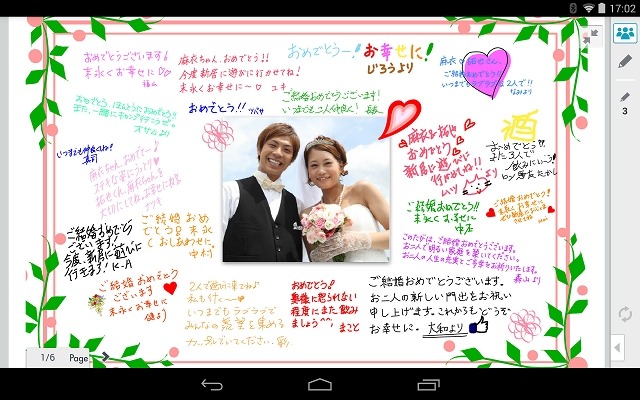 17:02
おめでとうございます!
末永くお幸せに♡
麻衣ちゃん、おめでとう!!
今度新居に遊びに行かせてね!
末永くお幸せに〜♡ ユキ
おめでとうー!
お幸せに!
じろうより
ご結婚おめでとう!!
いつまでもラブラブな2人で!!
なみより
おめでとう!! ツバサ
ご結婚おめでとうございます!
オサムより
いつまでも仲良くね!
麻衣ちゃん、おめでとー♪
麻衣&拓也
おめでとう
新居に遊びに
行かせてね!!
ムツミより
酒
おめでとう!!
また3人で
飲みにいこう!
ご結婚おめでとう
ございます!
今度、新居に遊びに
行きます! K.A
ご結婚おめ
でとう♡末永
くおしあわせに。
中村
ご結婚おめでとう!!
末永くお幸せに
中居
このたびは、ご結婚おめでとうございます。
お二人で明るい家庭を築いてください。
お二人の人生の充実とご多幸をお祈りいたします。
森山より
ご結婚おめでとう
ございます
末永くお幸せに
健より
2人で遊びに来てね♪
私も行く〜
いつまでもラブラブで
みんなの羨望を集める
カップルでいてください。
おめでとう!
奥様に怒られない
程度にまた飲み
ましょう^^; まこと
ご結婚おめでとうございます。
お二人の新しい門出をお祝い
申し上げます。これからもどうぞ
お幸せに。 大和より
1/6 Page
3